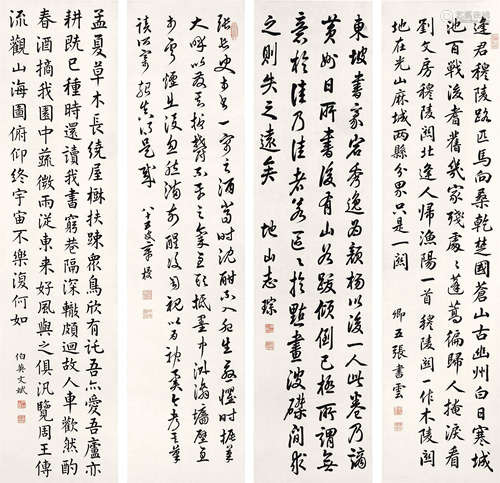 逢君穆陵路匹馬向桑乾楚國蒼山古幽州白日寒城
池百戰後耆舊幾家殘處〻蓬蒿徧歸人掩淚看
劉文房穆陵關北逢人歸漁陽一首穆陵關一作木陵關
地在光山麻城兩縣分界只是一關
卿五張書雲
東坡書家容秀逸為顏楊以後一人此卷乃謫
黃州日所書後有山谷跋傾倒已極所謂無
意於佳乃佳者若區〻於點畫波磔間求
之則失之遠矣
地山志琮
張長史書一字之酒當時沈酣
大呼以髮
雲煙滅沒忽然滿前醒後自視以為神異
孟夏草木長繞屋樹扶疎眾鳥欣有託吾亦愛吾廬亦
耕既已種時還讀我書窮巷隔深轍頗迴故人車歡然酌
春酒摘我園中蔬微雨從東來好風與之俱汎覽周王傳
流觀山海圖俯仰終宇宙不樂復何如
伯英文斌